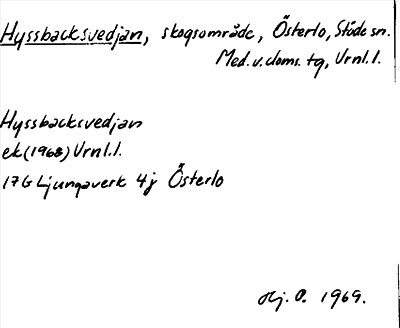 Hyssbacksvedjan, skogsområde, Österlo, Stöde sn.
Med. v. doms. tg, Vrnl. l.
Hyssbacksvedjan
ek (1968) Vrnl. l.
17G Ljungaverk 4j Österlo
Hj. O. 1969.